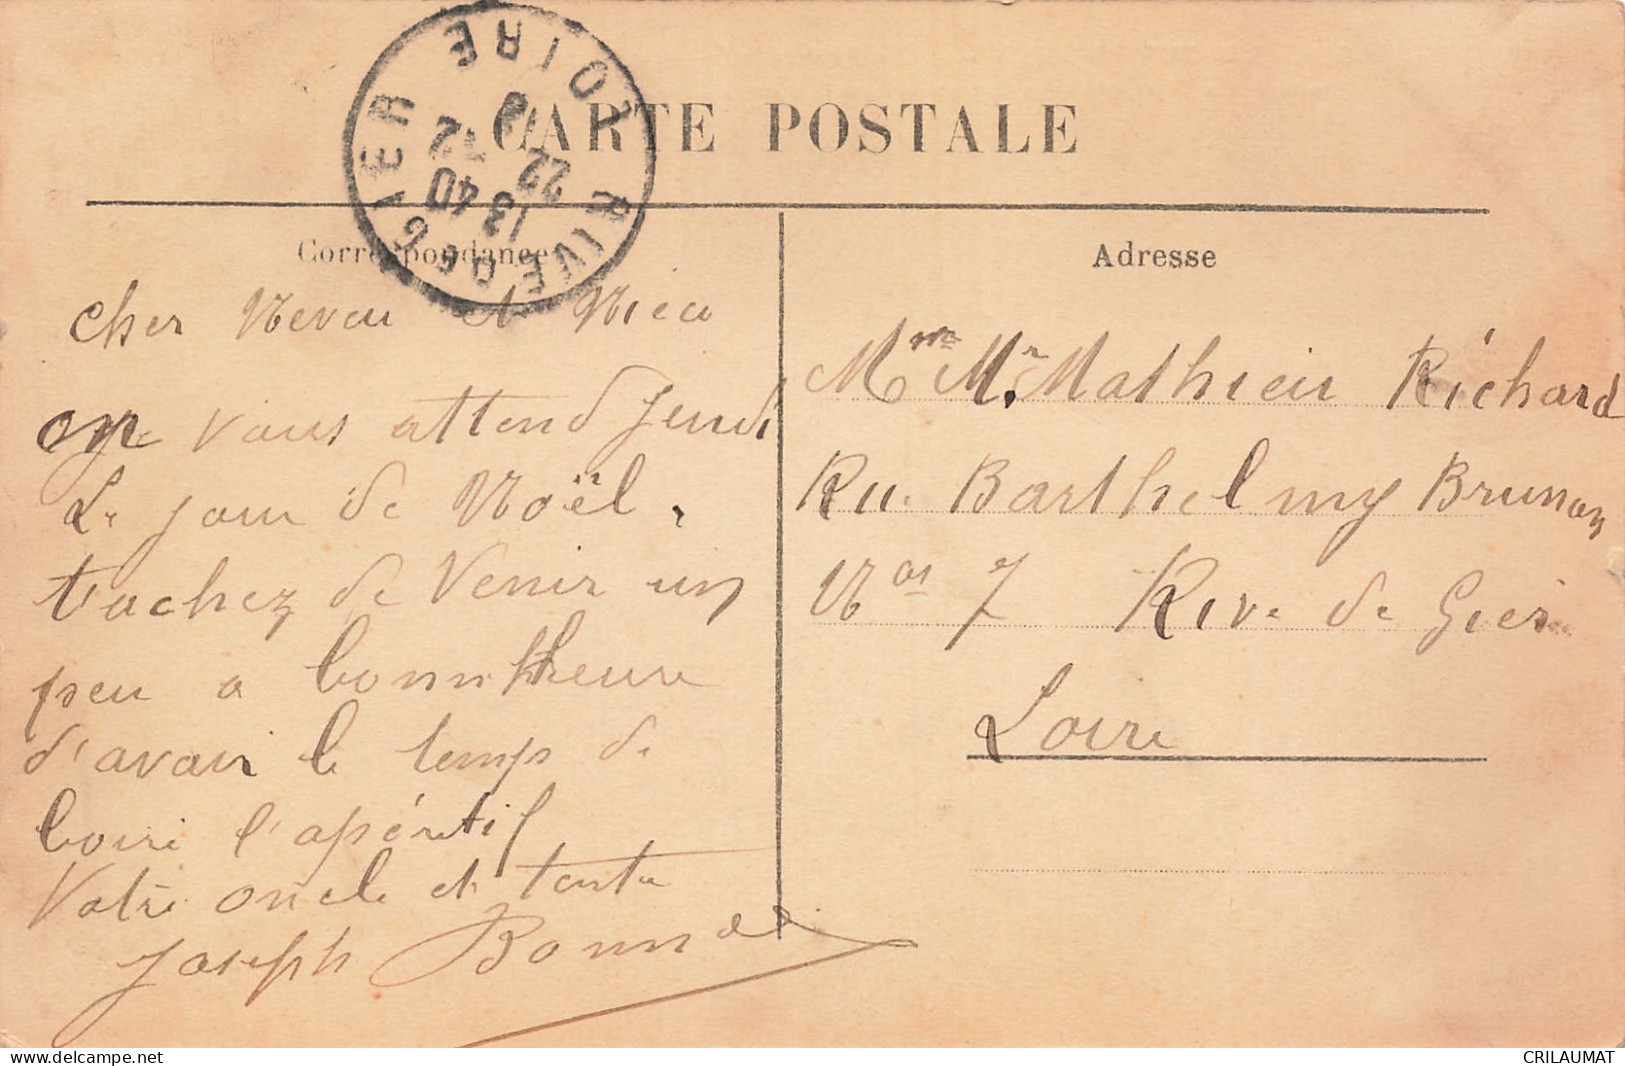 CARTE POSTALE
RIVE DE GIER LOIRE
13 40
22 12
12
Correspondance
Cher Neveu et Niea
on vous attend Jeudi
Le jour de Noël.
tachez de Venir un
peu a bonnhheure
d'avoir le temp de
boire l'apéritif
Votre oncle et tante
Joseph
Adresse
Mme Mr Mathieu Richard
Rue Barthelmy Brunon
Nos 7 Rive de Gier
Loire
CRILAUMAT
delcampe.net